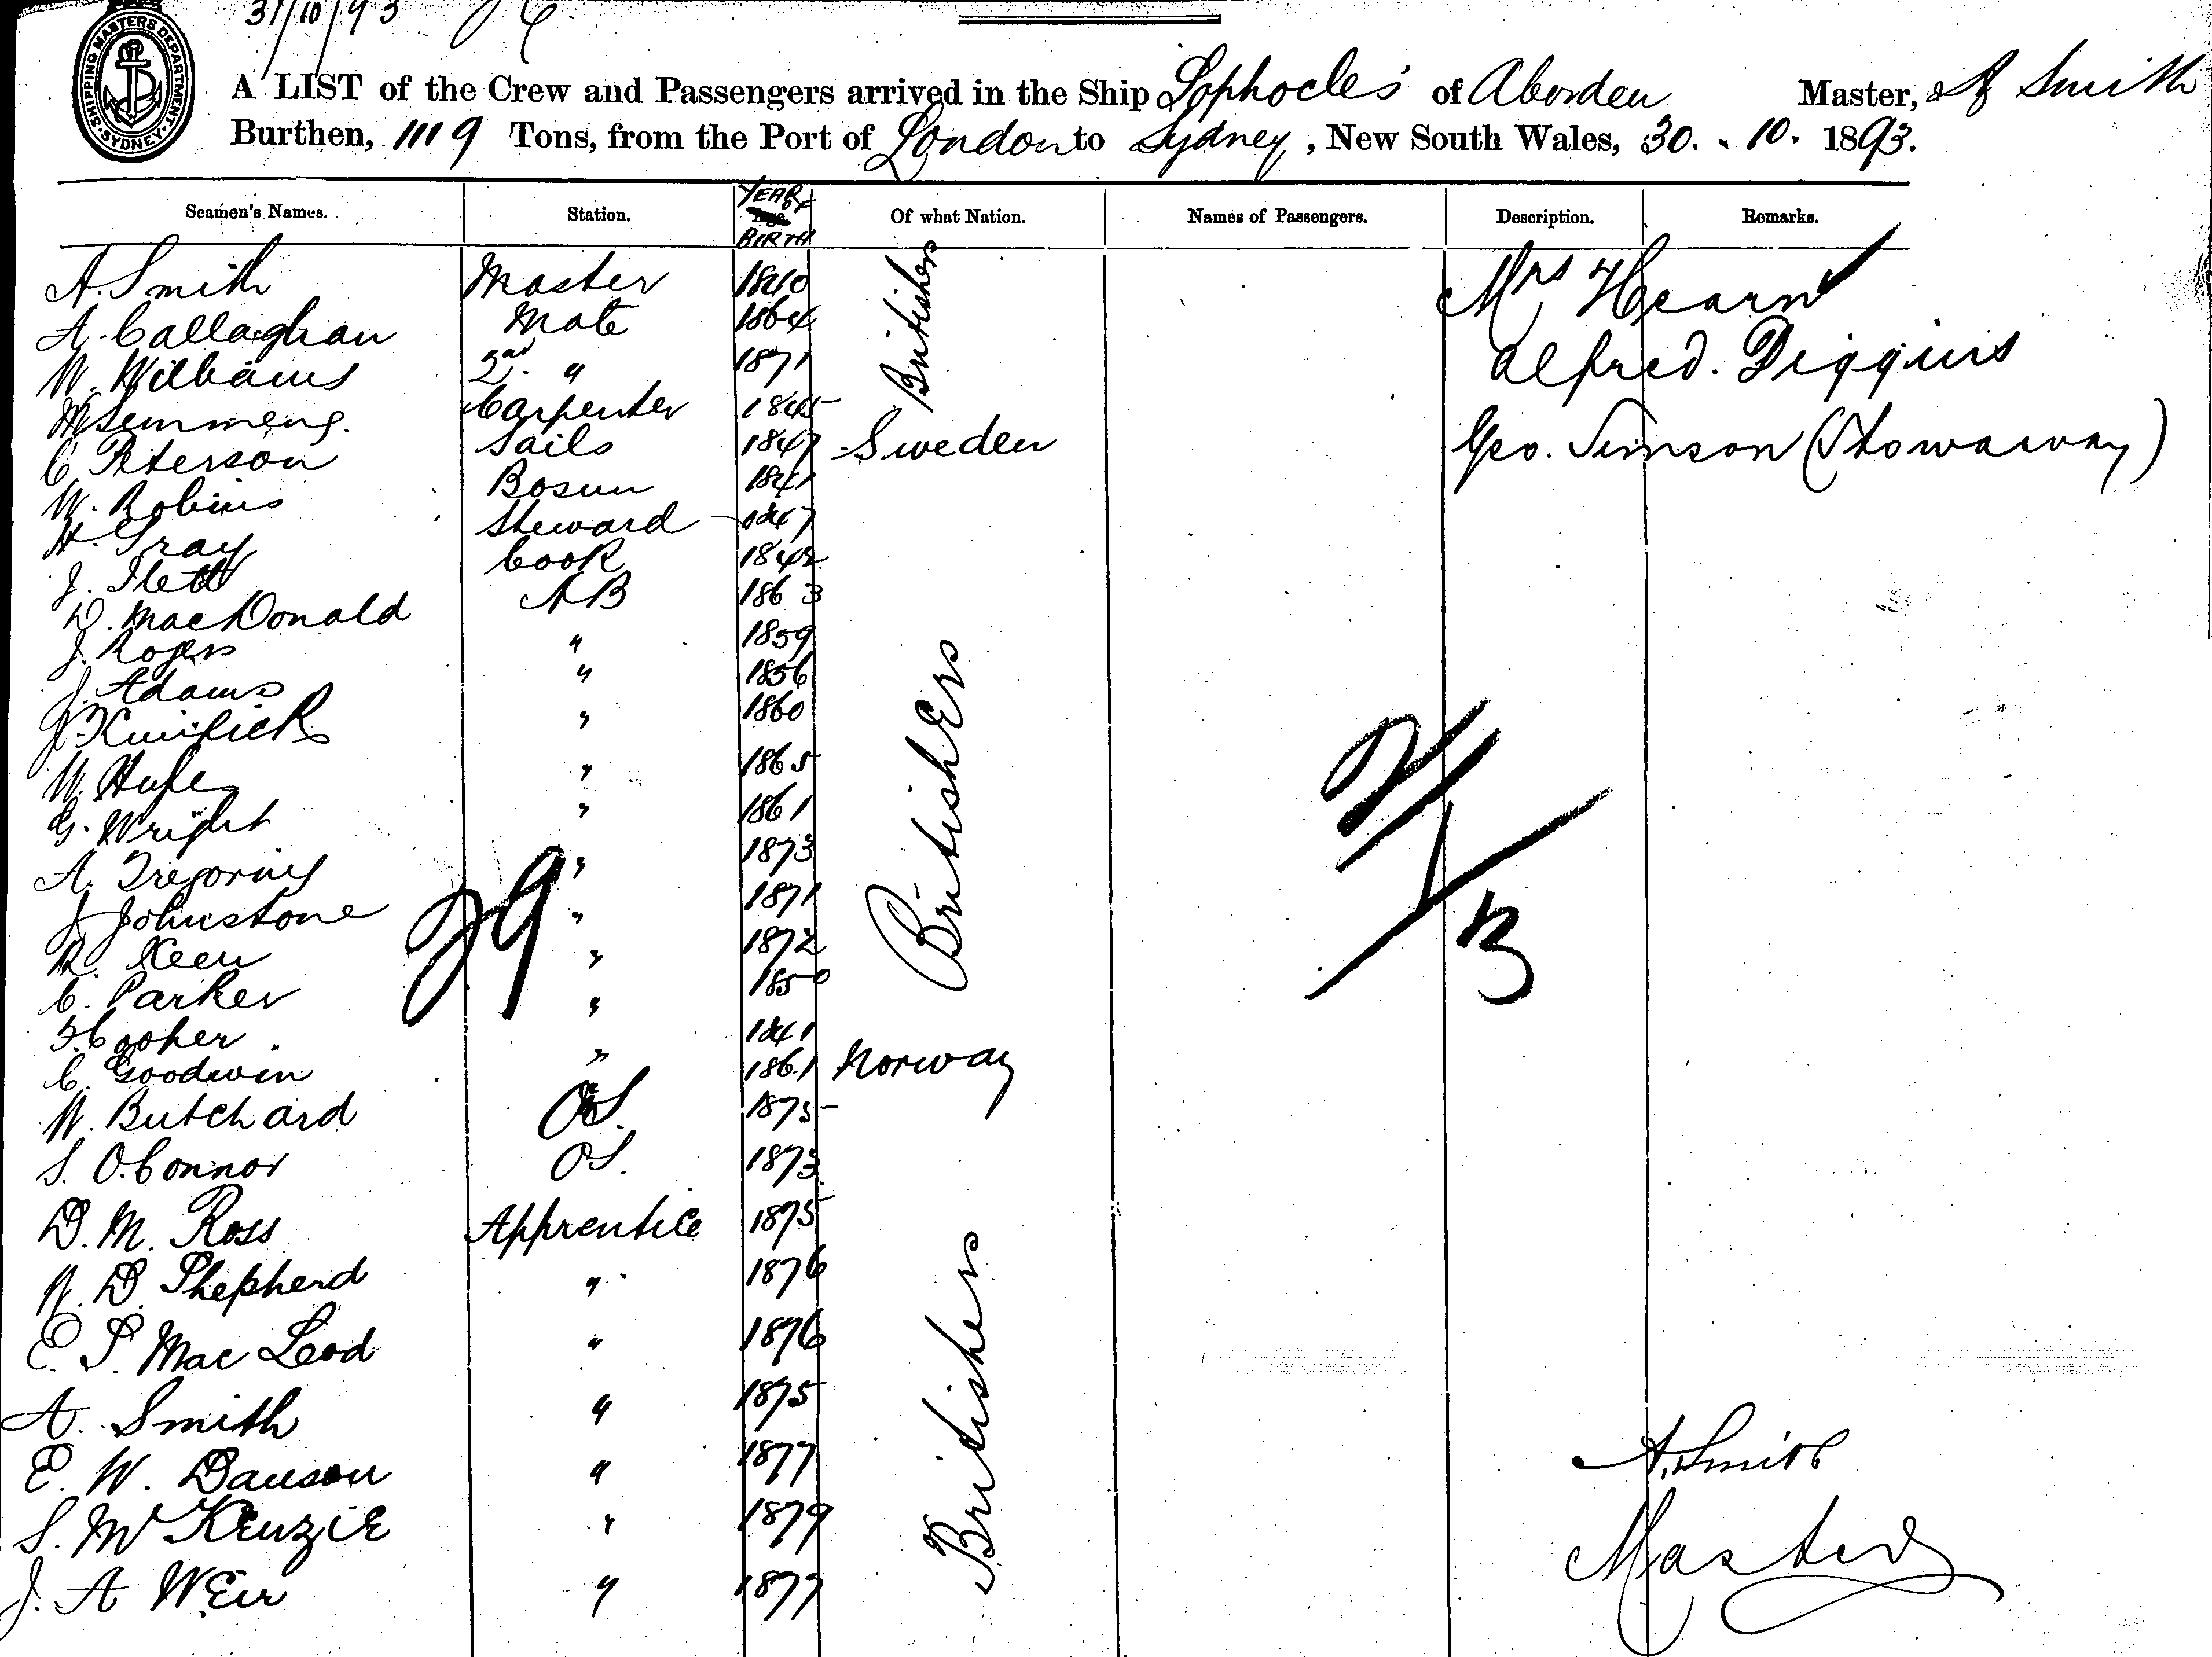 31/10/93
SHIPPING MASTERS DEPARTMENT SYDNEY
A LIST of the Crew and Passengers arrived in the Ship Sophocles of Aberdeen Master, A Smith
Burthen, 1119 Tons, from the Port of London to Sydney, New South Wales, 30. 10. 1893.
Seamen's Names. Station. YEAR OF BIRTH Of what Nation. Names of Passengers. Description. Remarks.
A. Smith Master 1840 Britishers Mrs Hearn
A. Callaghan Mate 1864 Alfred. Diggins
W. Williams 2nd " 1871
Carpenter 1845 Geo. Simson (Stowaway)
C Peterson Sails 1847 Sweden
W. Robins Bosun 1841
H. Gray Steward 1847
J. Ilett Cook 1842
D. MacDonald AB 1863
J. Rogers " 1859 Britishers
J. Adams " 1856
J. " 1860
W. " 1865
G. Wright " 1861
A. " 1873
J. Johnstone " 1871
R. Keen " 1872
C. Parker " 1850
F. Cooper " 1841
C. Goodwin " 1861 Norway
W. Butchard OS. 1875
S. O'Connor OS. 1873
D. M. Ross Apprentice 1875 Britishers
W. D. Shepherd " 1876
E. P. MacLeod " 1876
A. Smith " 1875
E. W. Dawson " 1877
S. McKenzie " 1879
J. A Weir " 1877
29
A. Smith
Master